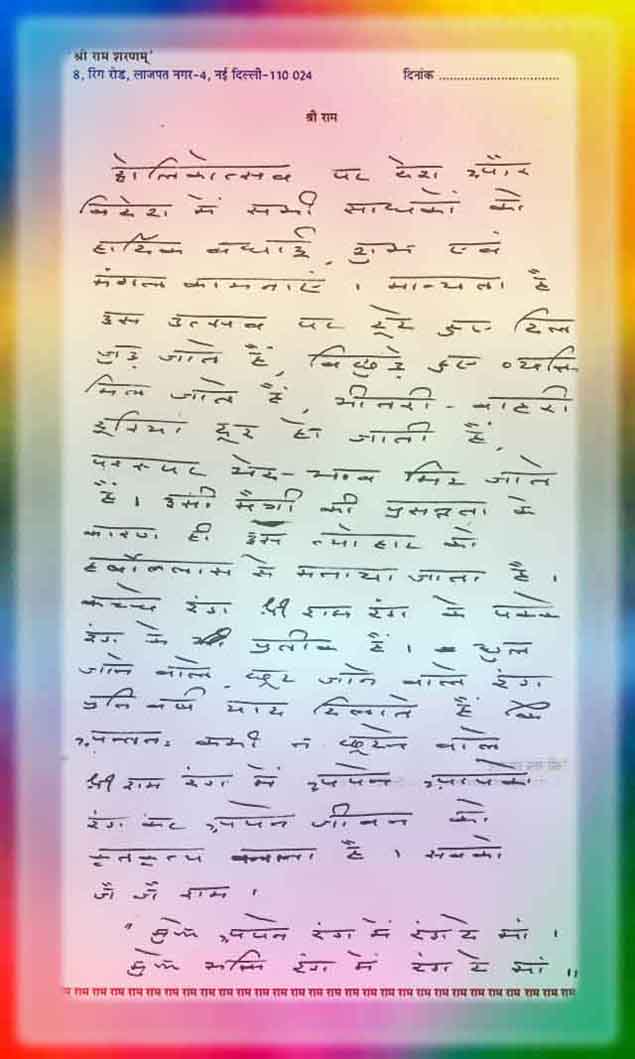 श्री राम शरणम्
8, रिंग रोड, लाजपत नगर-4, नई दिल्ली-110 024 दिनांक ................................
श्री राम
होलिकोत्सव पर देश और
विदेश में सभी साधकों को
हार्दिक बधाई, शुभ एवं
मंगल कामनाएं । मान्यता है
इस उत्सव पर टूटे हुए दिल
जुड़ जाते हैं, बिछुड़े हुए व्यक्ति
मिल जाते हैं, भीतरी - बाहरी
दूरियां दूर हो जाती हैं,
परस्पर भेद-भाव मिट जाते
हैं । इसी मैत्री की प्रसन्नता के
कारण ही इस त्योहार को
हर्षोल्लास से मनाया जाता है ।
कच्चे रंग श्री राम रंग के पक्के
रंग के प्रतीक हैं । धुल
जाने वाले, छूट जाने वाले रंग
प्रति वर्ष याद दिलाते हैं कि
अन्ततः कभी न छूटने वाले
श्री राम रंग में अपने आपको
रंग कर अपने जीवन को
कृतकृत्य करना है । सबको
जै जै राम ।
" मुझे अपने रंग में रंग दे मां ।
मुझे भक्ति रंग में रंग दे मां ।।
राम राम राम राम राम राम राम राम राम राम राम राम राम राम राम राम राम राम राम राम राम राम राम राम राम राम राम